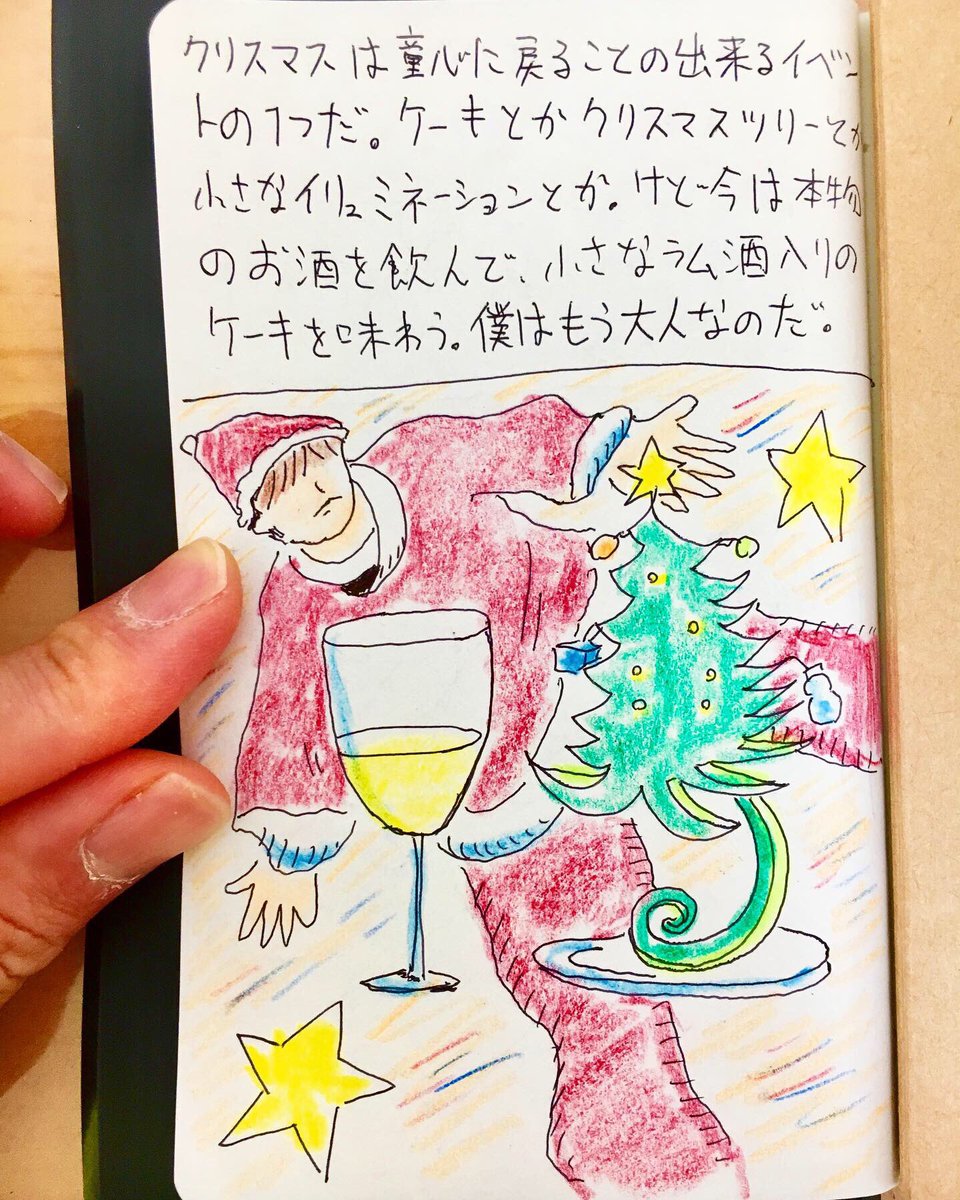 クリスマスは童心に戻ることの出来るイベン
トの1つだ。ケーキとかクリスマスツリーとか
小さなイリュミネーションとか。けど今は本物
のお酒を飲んで、小さなラム酒入りの
ケーキを味わう。僕はもう大人なのだ。